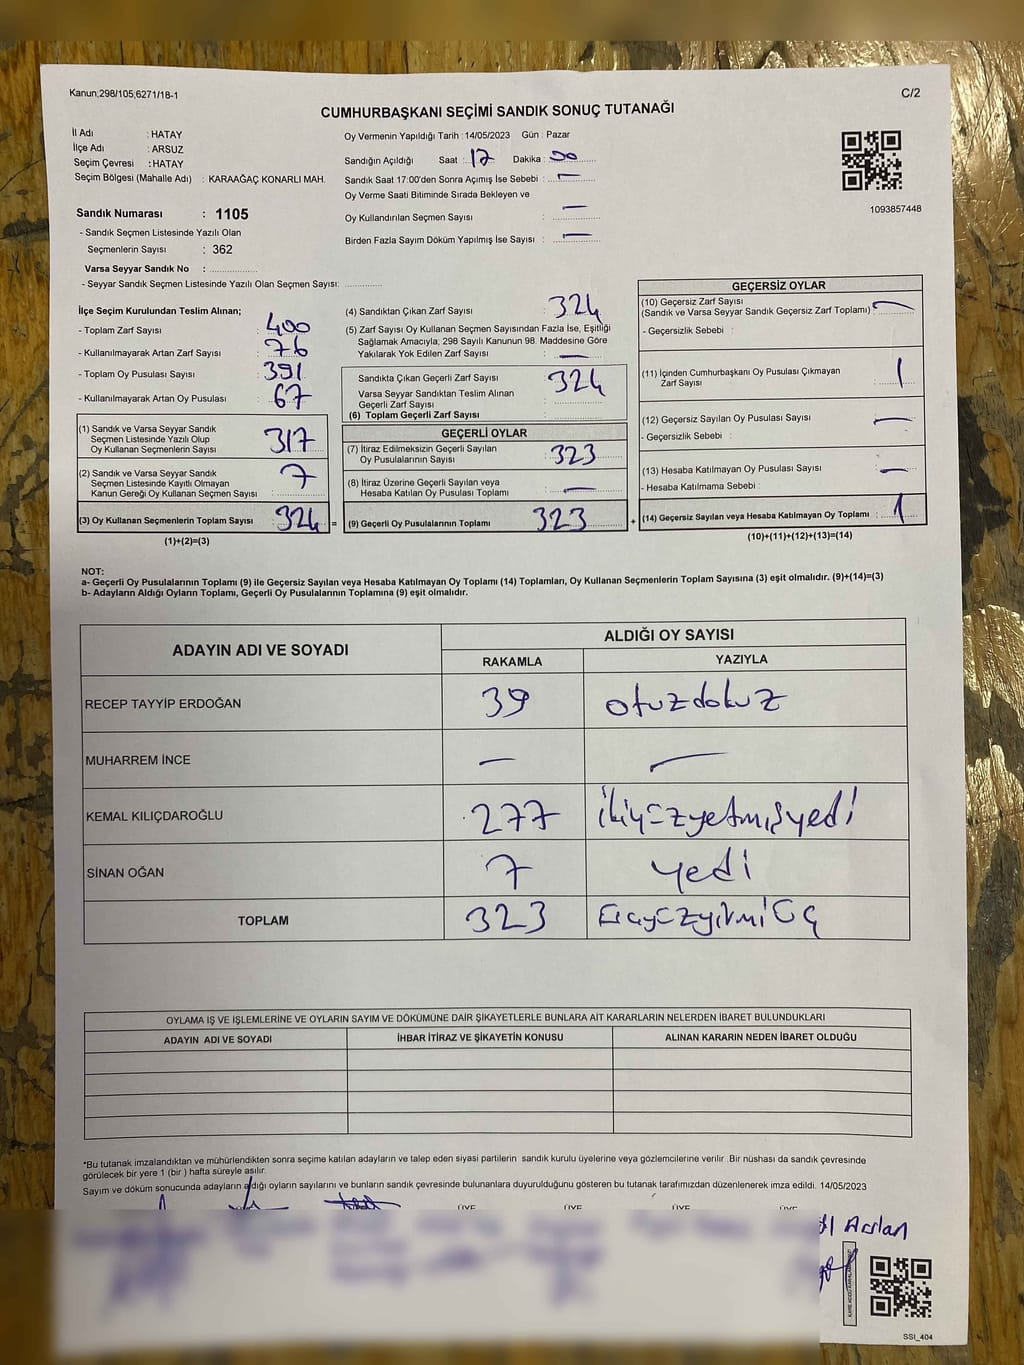 Kanun;298/105,6271/18-1
C/2
CUMHURBAŞKANI SEÇİMİ SANDIK SONUÇ TUTANAĞI
İl Adı : HATAY
İlçe Adı : ARSUZ
Seçim Çevresi : HATAY
Seçim Bölgesi (Mahalle Adı) : KARAAĞAÇ KONARLI MAH.
Sandık Numarası : 1105
- Sandık Seçmen Listesinde Yazılı Olan
Seçmenlerin Sayısı : 362
Varsa Seyyar Sandık No :
- Seyyar Sandık Seçmen Listesinde Yazılı Olan Seçmen Sayısı:
Oy Vermenin Yapıldığı Tarih : 14/05/2023 Gün : Pazar
Sandığın Açıldığı Saat : 17 Dakika : 00
Sandık Saat 17:00'den Sonra Açımış İse Sebebi : —
Oy Verme Saati Bitiminde Sırada Bekleyen ve
Oy Kullandırılan Seçmen Sayısı : —
Birden Fazla Sayım Döküm Yapılmış İse Sayısı : —
1093857448
İlçe Seçim Kurulundan Teslim Alınan;
- Toplam Zarf Sayısı : 400
- Kullanılmayarak Artan Zarf Sayısı : 76
- Toplam Oy Pusulası Sayısı : 391
- Kullanılmayarak Artan Oy Pusulası : 67
(1) Sandık ve Varsa Seyyar Sandık
Seçmen Listesinde Yazılı Olup
Oy Kullanan Seçmenlerin Sayısı : 317
(2) Sandık ve Varsa Seyyar Sandık
Seçmen Listesinde Kayıtlı Olmayan
Kanun Gereği Oy Kullanan Seçmen Sayısı : 7
(3) Oy Kullanan Seçmenlerin Toplam Sayısı : 324 =
(1)+(2)=(3)
(4) Sandıktan Çıkan Zarf Sayısı : 324
(5) Zarf Sayısı Oy Kullanan Seçmen Sayısından Fazla İse, Eşitliği
Sağlamak Amacıyla; 298 Sayılı Kanunun 98. Maddesine Göre
Yakılarak Yok Edilen Zarf Sayısı : —
Sandıkta Çıkan Geçerli Zarf Sayısı : 324
Varsa Seyyar Sandıktan Teslim Alınan
Geçerli Zarf Sayısı
(6) Toplam Geçerli Zarf Sayısı :
GEÇERLİ OYLAR
(7) İtiraz Edilmeksizin Geçerli Sayılan
Oy Pusulalarının Sayısı : 323
(8) İtiraz Üzerine Geçerli Sayılan veya
Hesaba Katılan Oy Pusulası Toplamı : —
(9) Geçerli Oy Pusulalarının Toplamı : 323 +
GEÇERSİZ OYLAR
(10) Geçersiz Zarf Sayısı
(Sandık ve Varsa Seyyar Sandık Geçersiz Zarf Toplamı) : —
- Geçersizlik Sebebi :
(11) İçinden Cumhurbaşkanı Oy Pusulası Çıkmayan
Zarf Sayısı : 1
(12) Geçersiz Sayılan Oy Pusulası Sayısı : —
- Geçersizlik Sebebi :
(13) Hesaba Katılmayan Oy Pusulası Sayısı : —
- Hesaba Katılmama Sebebi :
(14) Geçersiz Sayılan veya Hesaba Katılmayan Oy Toplamı : 1
(10)+(11)+(12)+(13)=(14)
NOT:
a- Geçerli Oy Pusulalarının Toplamı (9) ile Geçersiz Sayılan veya Hesaba Katılmayan Oy Toplamı (14) Toplamları, Oy Kullanan Seçmenlerin Toplam Sayısına (3) eşit olmalıdır. (9)+(14)=(3)
b- Adayların Aldığı Oyların Toplamı, Geçerli Oy Pusulalarının Toplamına (9) eşit olmalıdır.
ADAYIN ADI VE SOYADI
ALDIĞI OY SAYISI
RAKAMLA YAZIYLA
RECEP TAYYİP ERDOĞAN 39 otuzdokuz
MUHARREM İNCE — —
KEMAL KILIÇDAROĞLU 277 ikiyüzyetmişyedi
SİNAN OĞAN 7 yedi
TOPLAM 323 üçyüzyirmiüç
OYLAMA İŞ VE İŞLEMLERİNE VE OYLARIN SAYIM VE DÖKÜMÜNE DAİR ŞİKAYETLERLE BUNLARA AİT KARARLARIN NELERDEN İBARET BULUNDUKLARI
ADAYIN ADI VE SOYADI İHBAR İTİRAZ VE ŞİKAYETİN KONUSU ALINAN KARARIN NEDEN İBARET OLDUĞU
*Bu tutanak imzalandıktan ve mühürlendikten sonra seçime katılan adayların ve talep eden siyasi partilerin sandık kurulu üyelerine veya gözlemcilerine verilir. Bir nüshası da sandık çevresinde
görülecek bir yere 1 (bir ) hafta süreyle asılır.
Sayım ve döküm sonucunda adayların aldığı oyların sayılarını ve bunların sandık çevresinde bulunanlara duyurulduğunu gösteren bu tutanak tarafımızdan düzenlenerek imza edildi. 14/05/2023
ÜYE ÜYE ÜYE ÜYE
Arslan
SSI_404